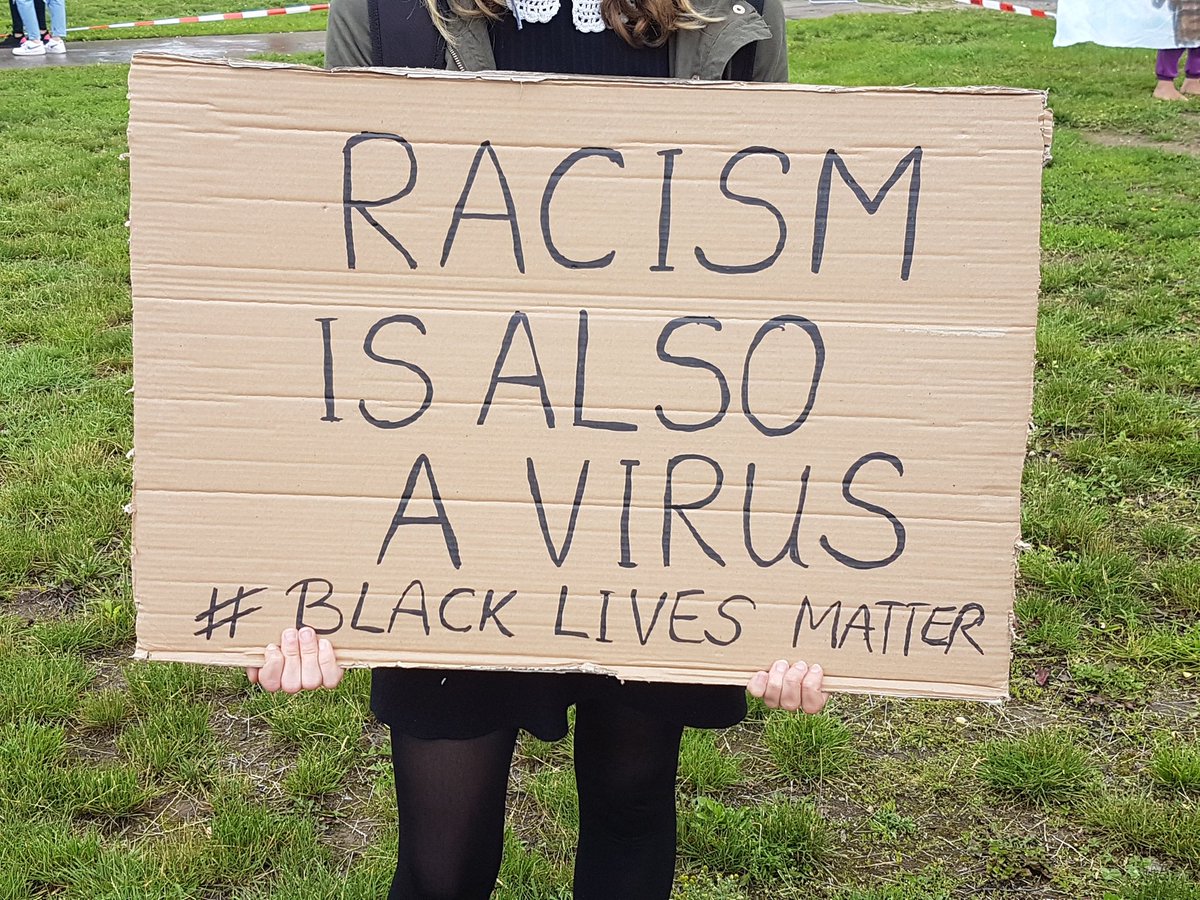 RACISM
IS ALSO
A VIRUS
# BLACK LIVES MATTER